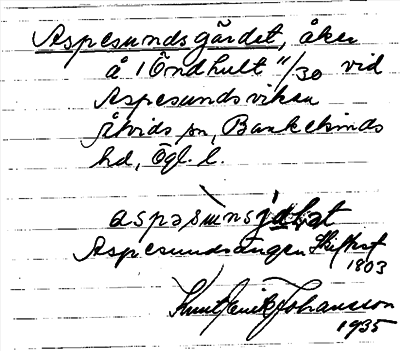 Aspesundsgärdet, åker
å 1 Öndhult 11/30 vid
Aspesundsviken
Åtvids sn, Bankekinds
hd, Ögl. l.
aspəsuns
Aspesundsängen Skiftesf
1803
Knut Erik Johansson
1935